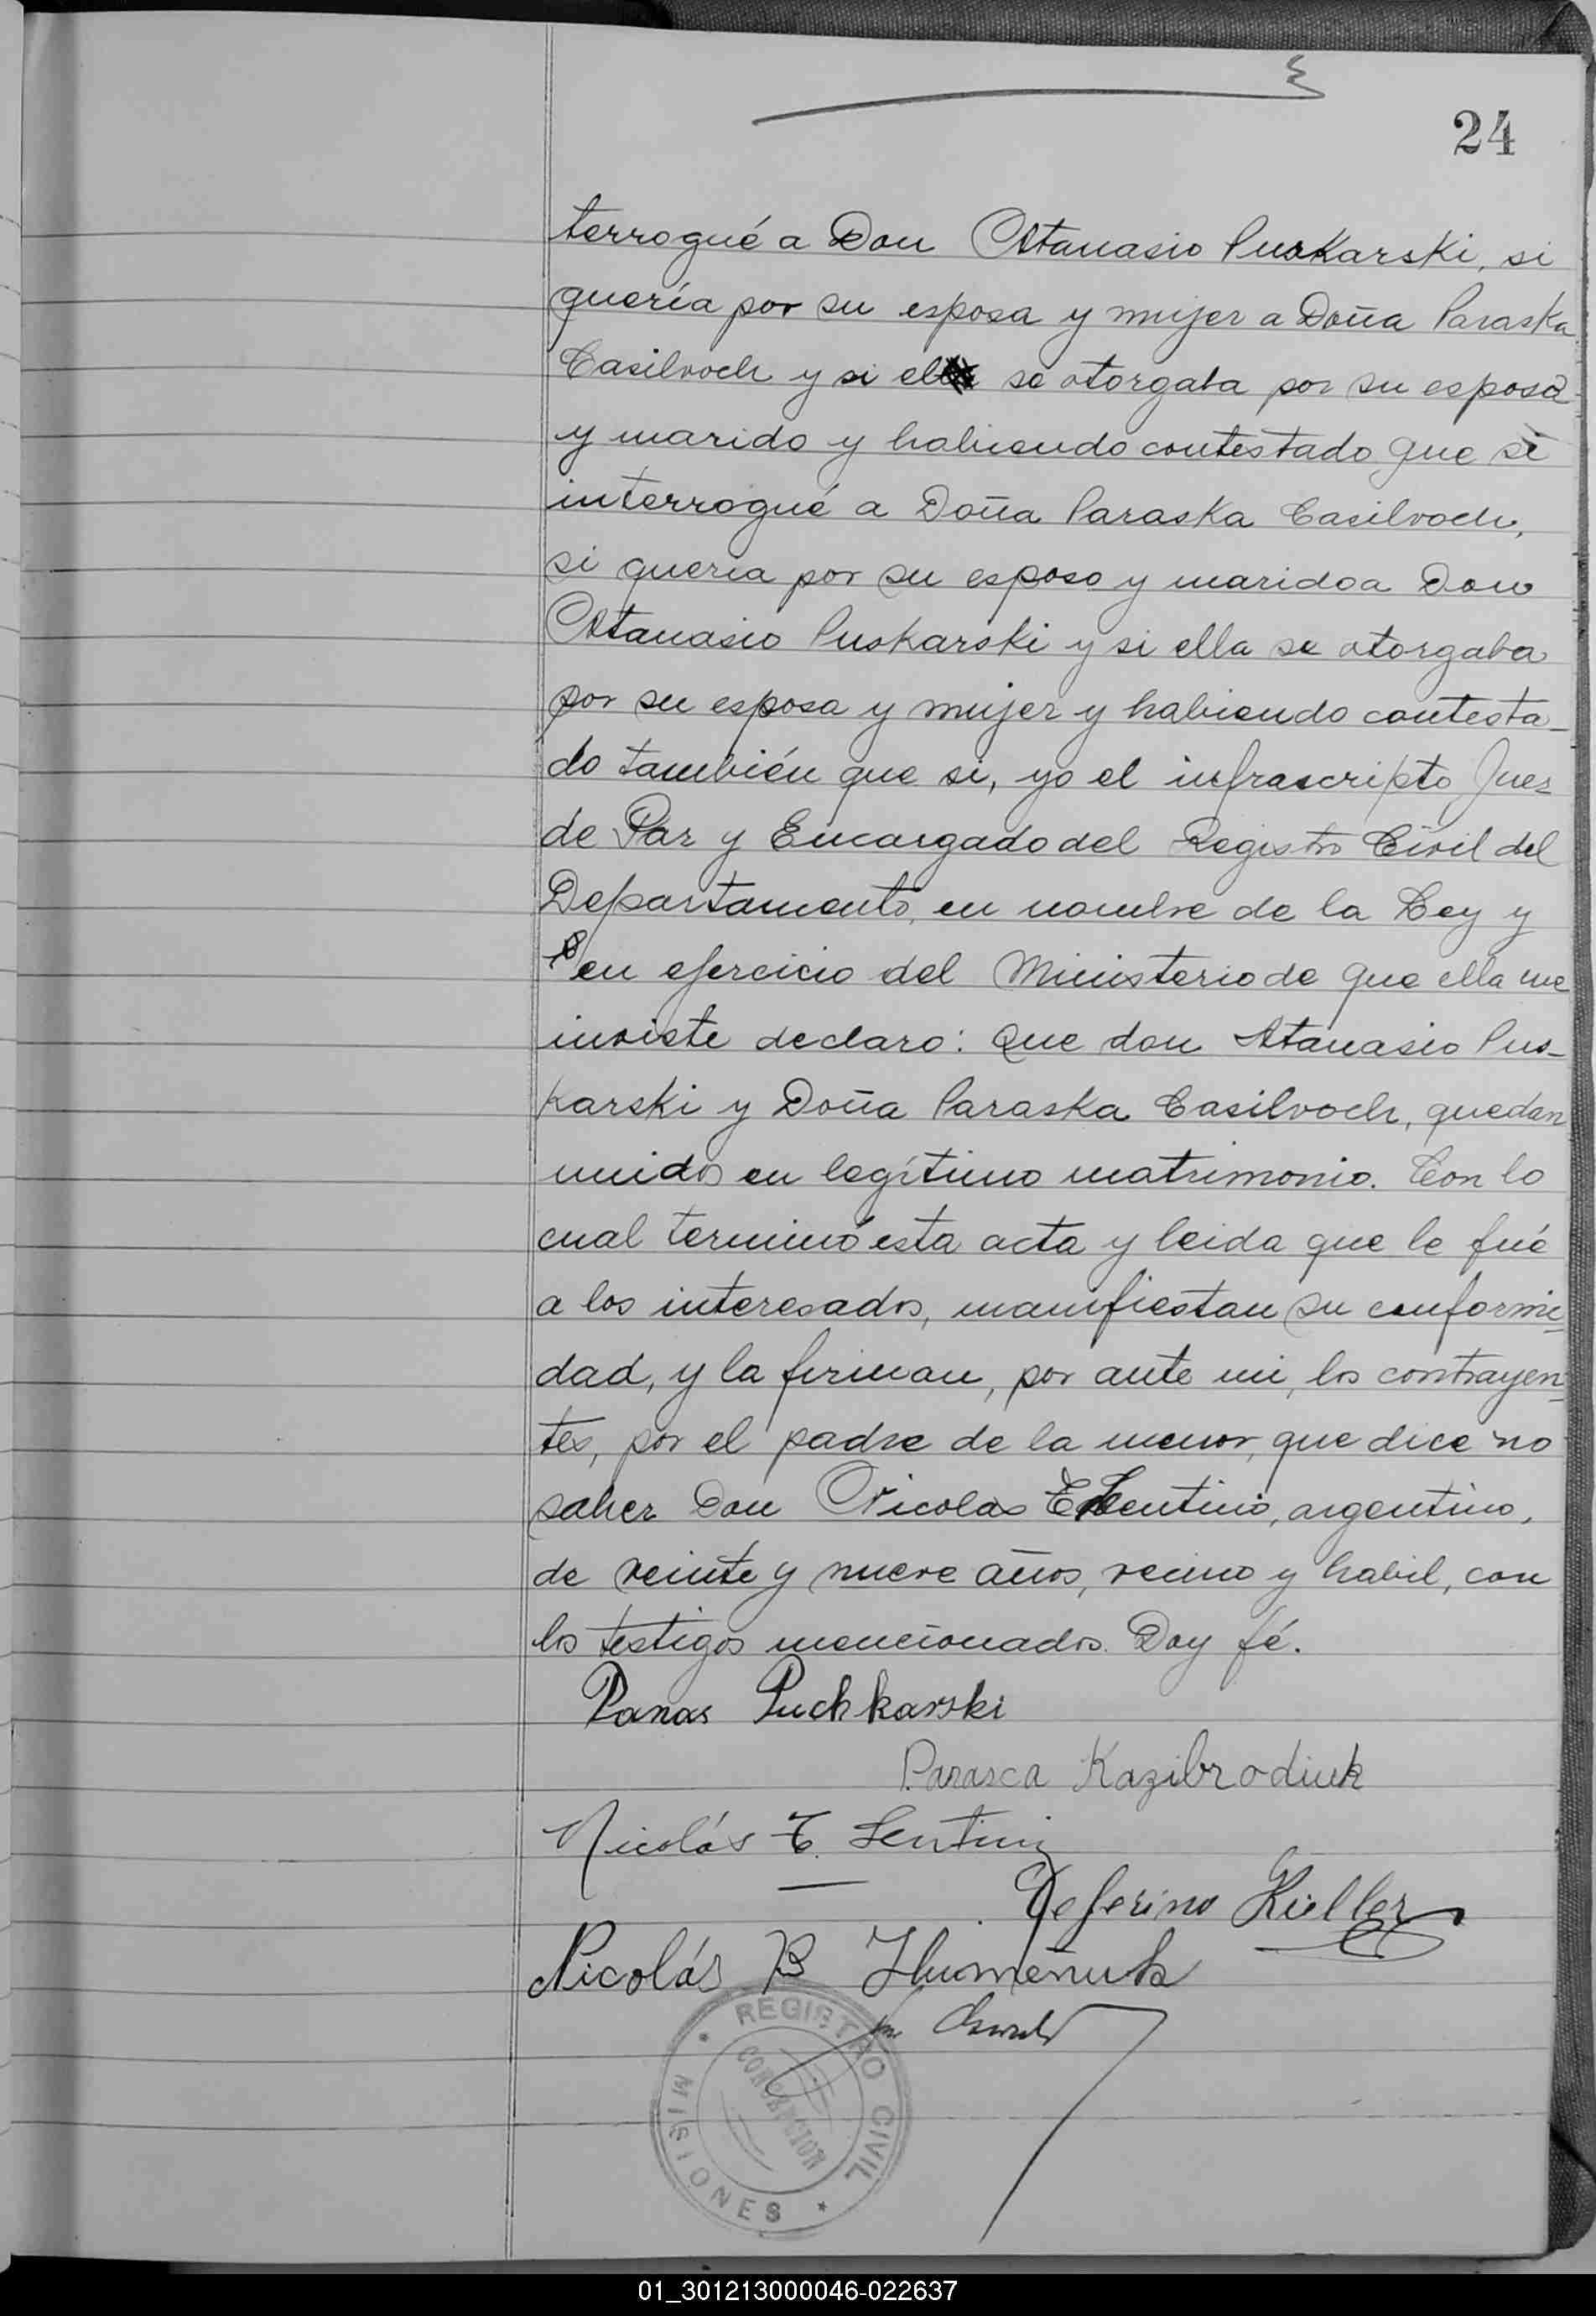 24
terrogué a Don Atanasio Puskarski, si
quería por su esposa y mujer a Doña Paraska
Casilvoch y si el se otorgaba por su esposo
y marido y habiendo contestado que si
interrogué a Doña Paraska Casilvoch,
si queria por su esposo y marido a Don
Atanasio Puskarski y si ella se otorgaba
por su esposa y mujer y habiendo contesta-
do también que si, yo el infrascripto Juez
de Paz y Encargado del Registro Civil del
Departamento, en nombre de la Ley y
en ejercicio del Ministerio de que ella me
inviste declaro: Que don Atanasio Pus-
karski y Doña Paraska Casilvoch, quedan
unidos en legítimo matrimonio. Con lo
cual terminó esta acta y leida que le fué
a los interesados, manifiestan su conformi-
dad, y la firman, por ante mi, los contrayen-
tes, por el padre de la menor, que dice no
saber Don Nicolas E Lentini, argentino,
de veinte y nueve años, vecino y habil, con
los testigos mencionados. Doy fé.
Panas Puchkarski
Parasca Kazibrodiuk
Nicolás E. Lentini
Ceferino Kieller
Nicolás B Humeñuk
REGISTRO CIVIL
MISIONES
CONCEPCION
01_301213000046-022637